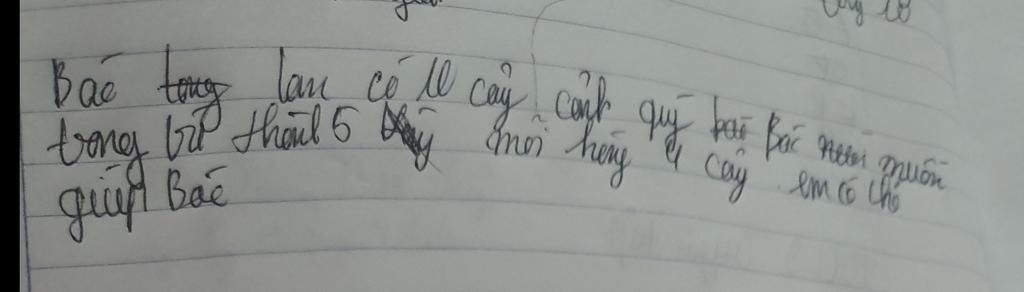 Bác lan có 10 cây cảnh quý Bác muốn
trong thành 5 mỗi hàng 4 cây em có thể
giúp Bác